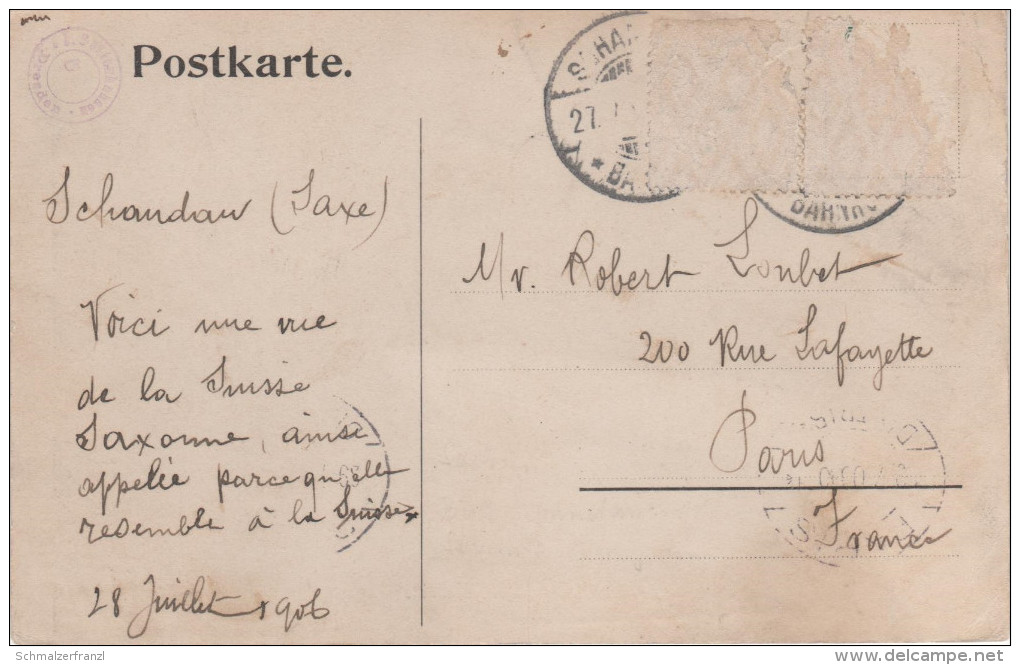 Postkarte.
27.
BAHNHO
Schandau (Saxe)
Voici une vue
de la Suisse
Saxonne, ainsi
appelée parcequ'elle
resemble à la Suisse
28 Juillet 1906
Mr. Robert Loubet
200 Rue Lafayette
Paris
France
Schmalzerfranzl
delcampe.net